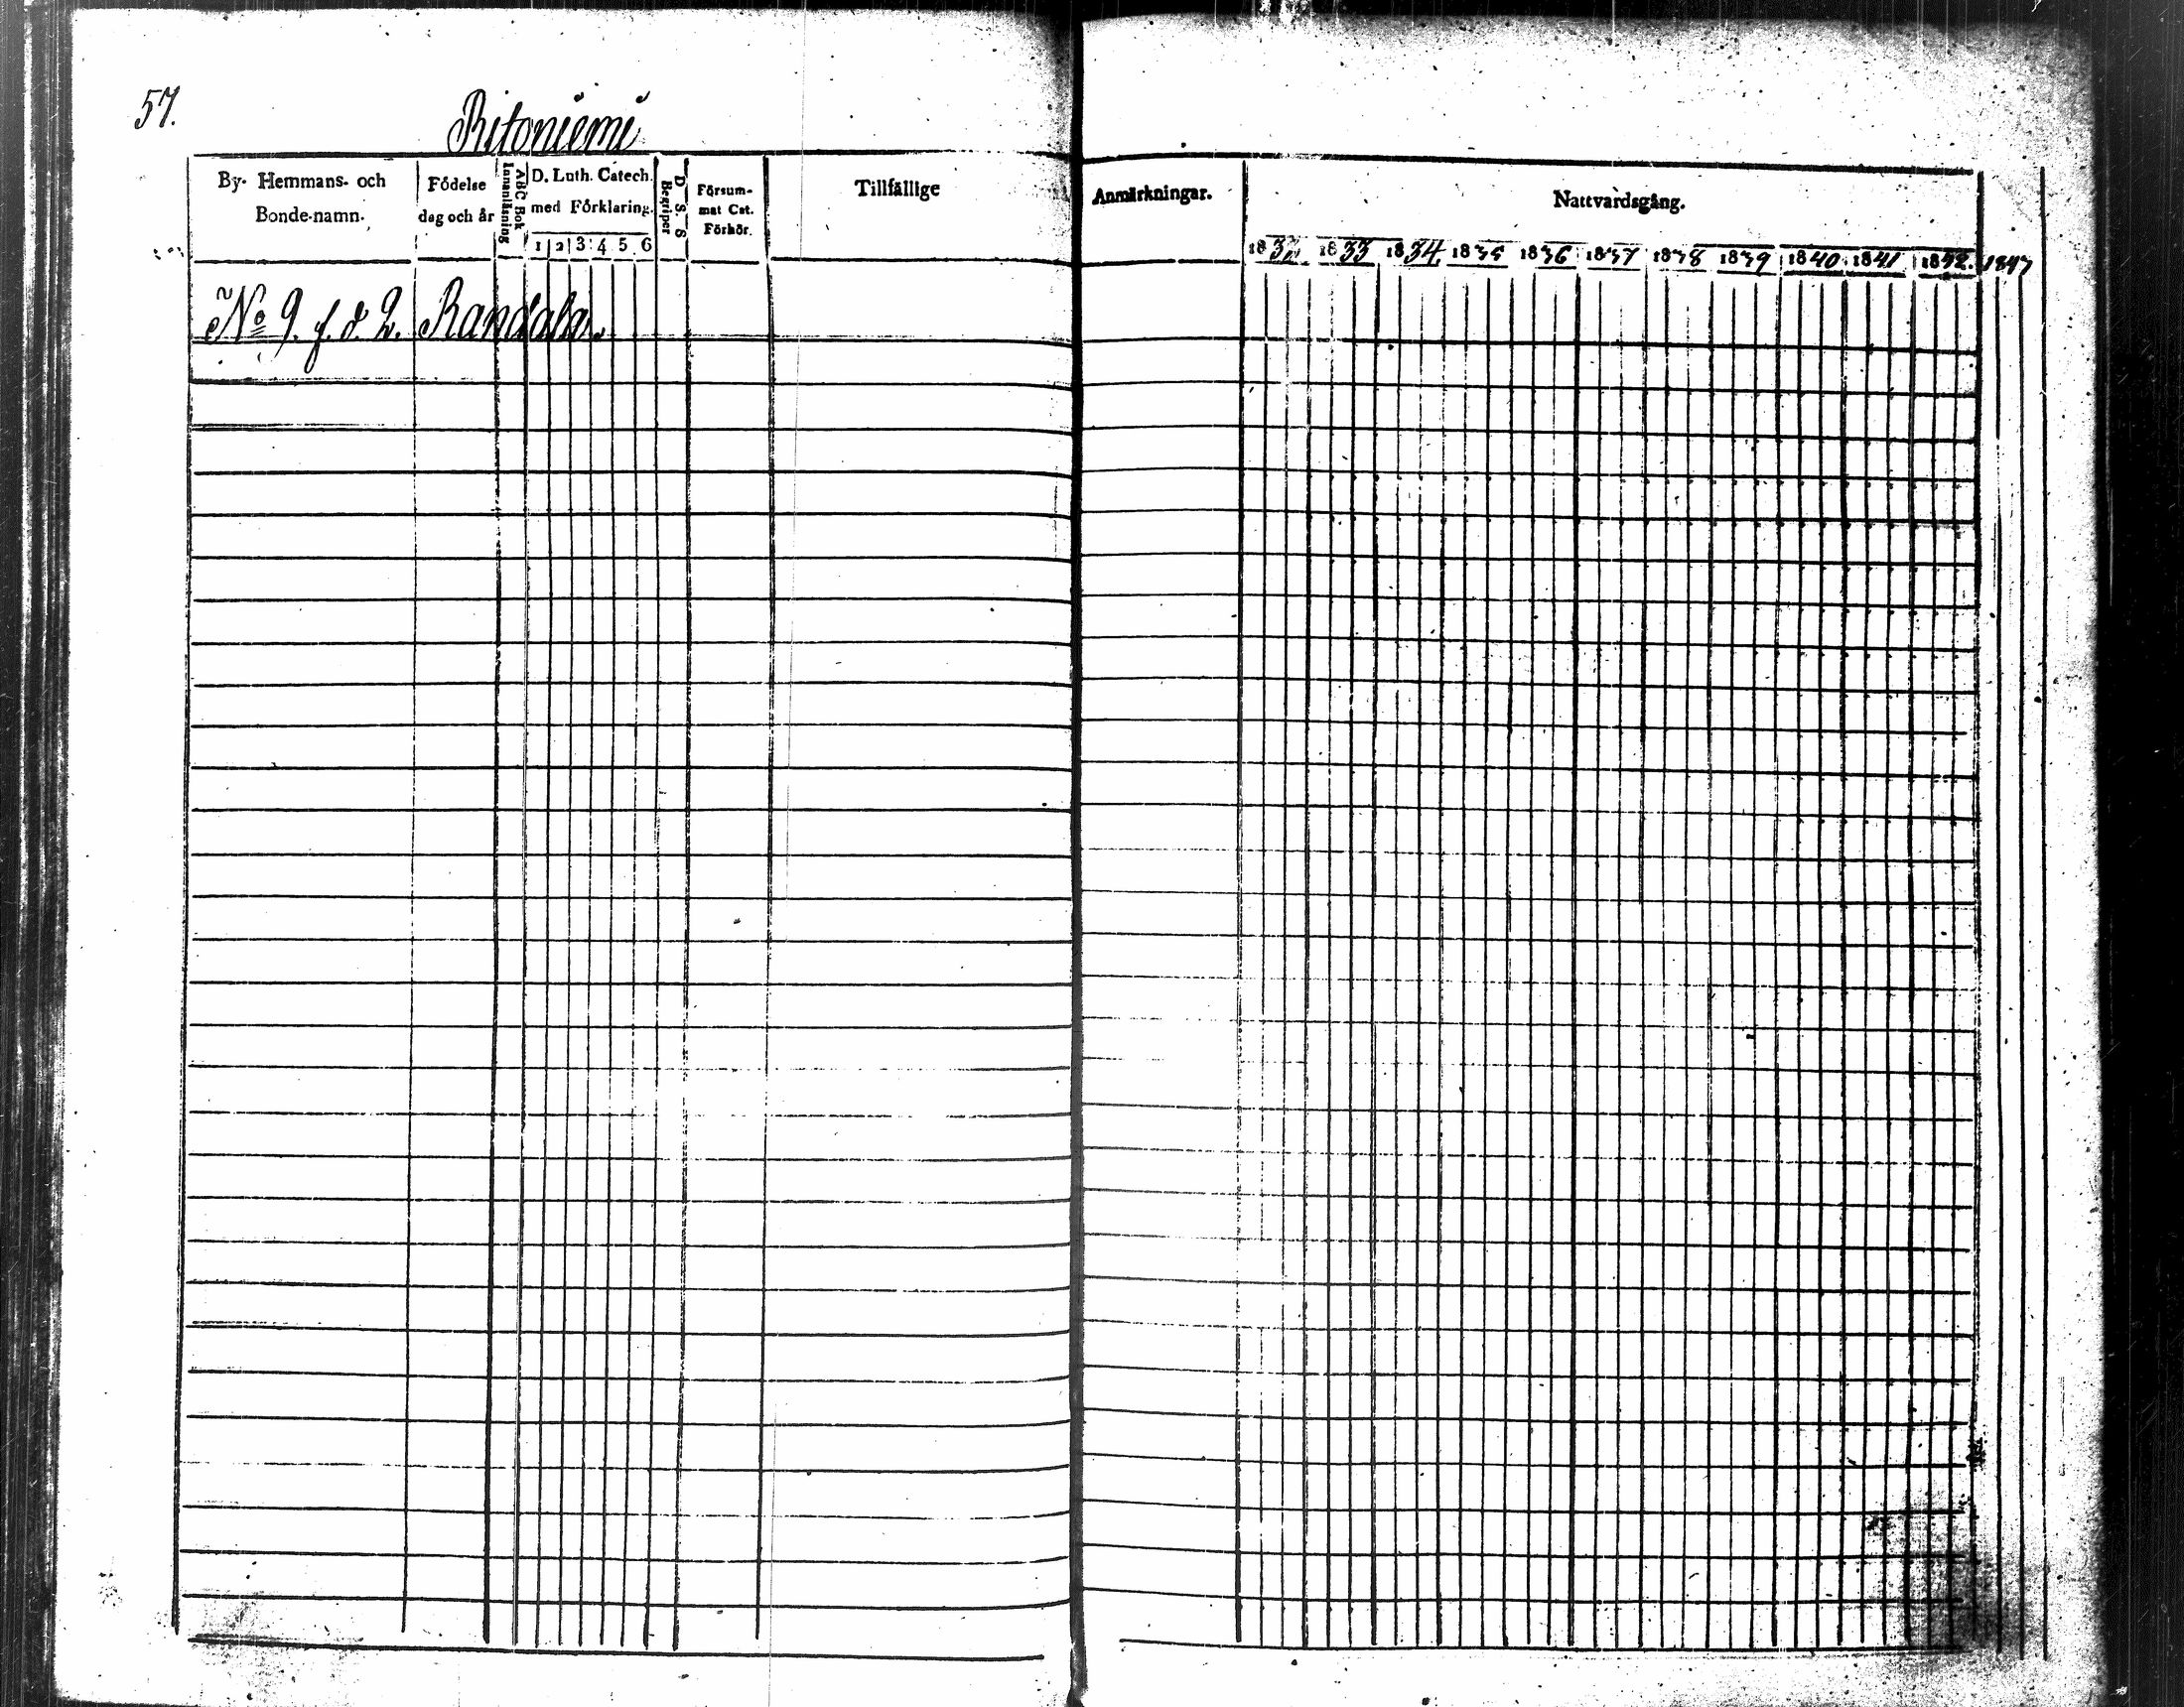 57.
Ritoniemi
By- Hemmans- och Bonde-namn.
Födelse dag och år
ABC Bok Innanläsning
D. Luth. Catech. med Förklaring.
1 2 3 4 5 6
D. S. S Begriper
Försum-
mat Cat.
Förhör.
Tillfällige
Anmärkningar.
Nattvardsgång.
1832. 1833 1834 1835 1836 1837 1838 1839 1840 1841 1842. 1843
No 9. f. d. 2. Randala.